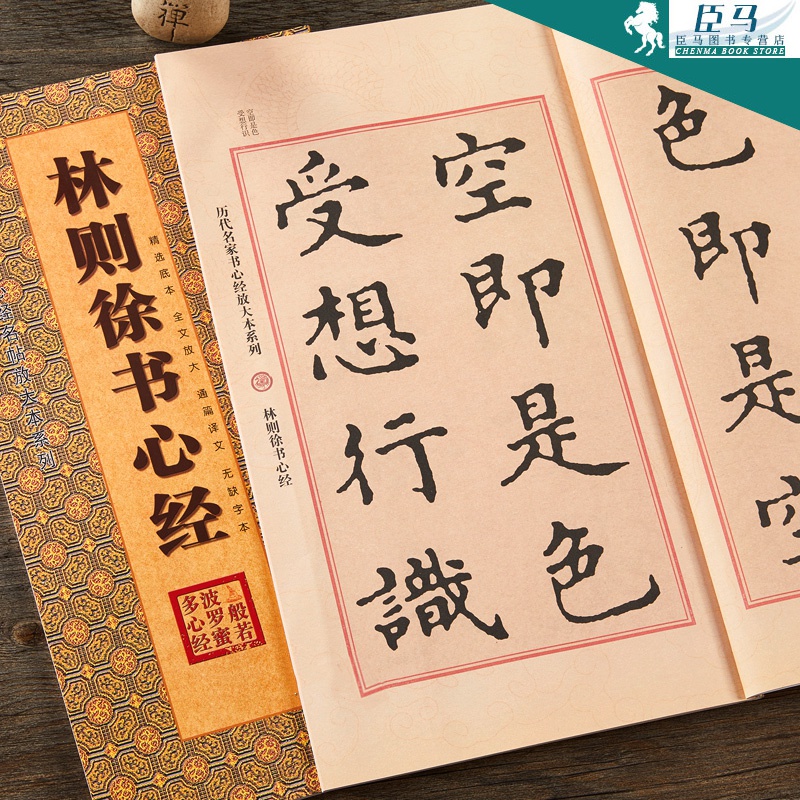 禅
臣马
臣马图书专营店
CHENMA BOOK STORE
林则徐书心经
精选底本 全文放大 通篇译文 无缺字本
名帖放大本系列
般若
波罗蜜
多心经
空即是色
受想行识
历代名家书心经放大本系列
林则徐书心经
色即是空
空即是色
受想行識